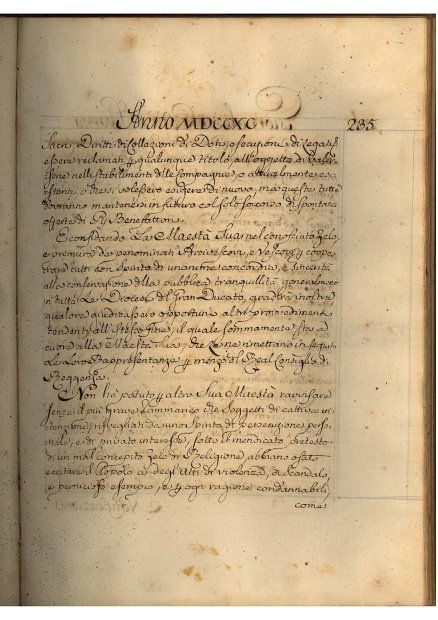 Anno MDCCXC
235
Sacri, Diritti di Collazioni di Doti, o facezioni, di Legati
essere reclamati p qualunque titolo all'oggetto di
nelli Stabilimenti delle Compagnie, o attualmente
o dessi volessero erigere di nuovo, ma queste tutte
dovranno mantenersi in futuro col solo soccorso di spontanee
offerte di Pij Benefattori.
E confidando La Maestà Sua nel conosciuto zelo,
e premura de nominati Arcivescovi, e Vescovi p coope
rare tutti con Spirito di unanime concordia, e sincerità
alla conservazione della pubblica tranquillità generalmente
in tutte Le Diocesi del Gran Ducato, gradirà inoltre
qualora giudicassero opportuni altri provvedimenti
tendenti all'istesso fine, il quale sommamente stà a
cuore alla Maestà Sua, che Le rimettano in seguito
Le Loro Rappresentanze p mezzo del Real Consiglio di
Reggenza.
Non hà potuto p altro Sua Maestà ravvisare
senza il più grave rammarico che soggetti di cattiva in-
tenzione, invogliati da uno spirito di persecuzione perso
nale, e di privato interesse, sotto il mendicato pretesto
di un mal concepito zelo di Religione, abbiano osato
eccitare il Popolo a degl'Atti di violenza, di scandalo,
e pernicioso esempio, e p ogni ragione condannabili,
come